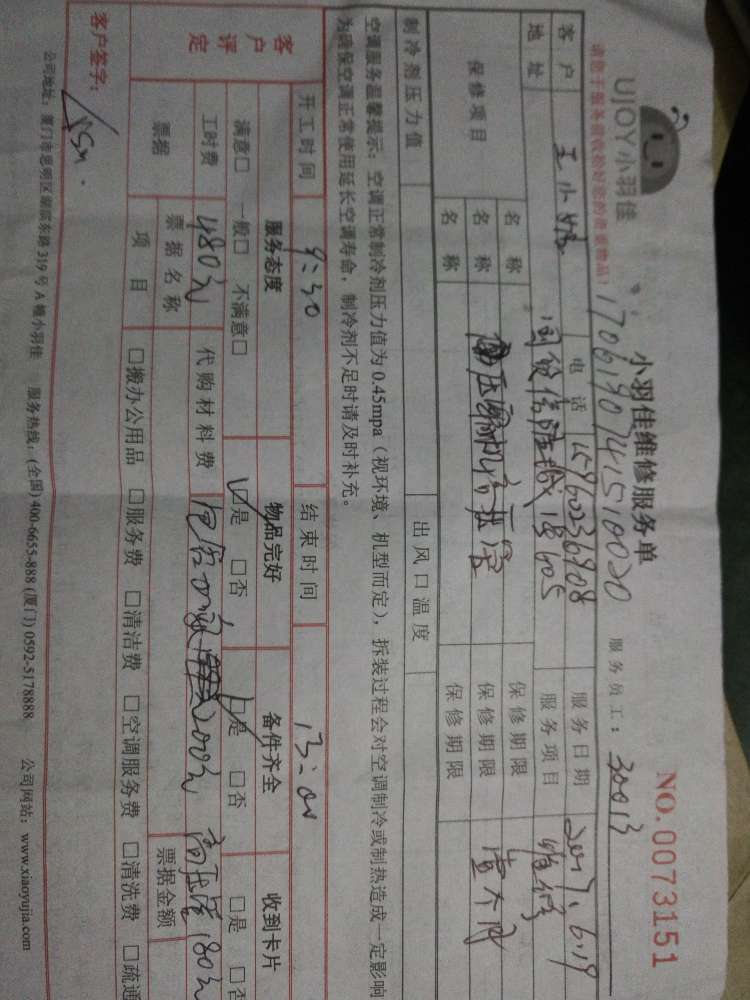 UJOY小羽佳
小羽佳维修服务单
NO.0073151
请您于服务前收拾好您的贵重物品!
17061907415510020
服务员工: 30013
客户 王小姐 电话 15960236908 服务日期 2017.6.19
地址 605 服务项目 维修
保修项目 名称 保修期限
名称 压缩机 高压管 保修期限 壹个月
名称 保修期限
制冷剂压力值 出风口温度
空调服务温馨提示:空调正常制冷剂压力值为0.45mpa(视环境、机型而定),拆装过程会对空调制冷或制热造成一定影响
为确保空调正常使用延长空调寿命,制冷剂不足时请及时补充。
开工时间 9:30 结束时间 13:00
客户评定 服务态度 物品完好 备件齐全 收到卡片
满意□ 一般□ 不满意□ ☑是 □否 ☑是 □否 □是 □否
工时费 480元 代购材料费 200元 高压管180元
票据 票据名称 票据金额
项目 □搬办公用品 □服务费 □清洁费 □空调服务费 □清洗费 □疏通
客户签字:
公司地址:厦门市思明区湖滨东路319号A幢小羽佳 服务热线:(全国)400-6655-888 (厦门)0592-5178888 公司网站:www.xiaoyujia.com